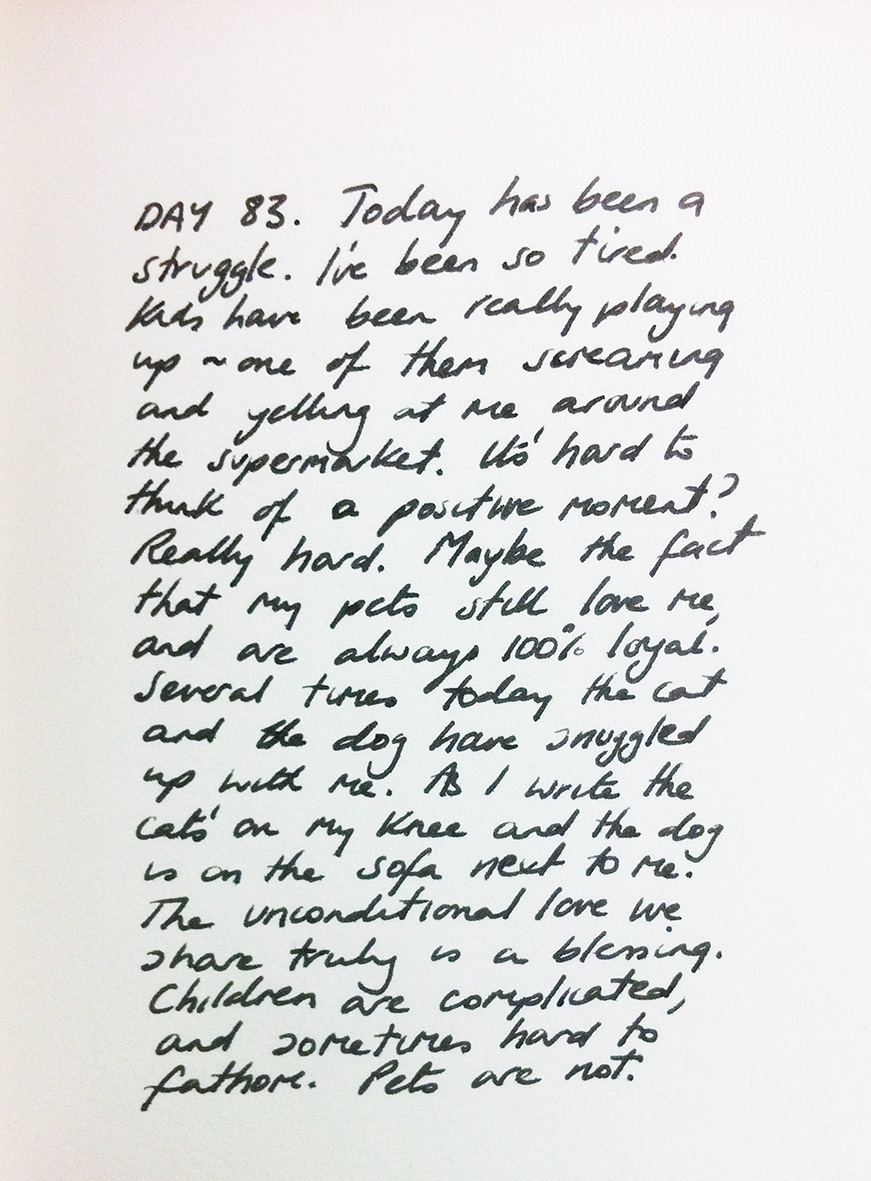 DAY 83. Today has been a
struggle. I've been so tired.
Kids have been really playing
up ~ one of them screaming
and yelling at me around
the supermarket. It's hard to
think of a positive moment?
Really hard. Maybe the fact
that my pets still love me,
and are always 100% loyal.
Several times today the cat
and the dog have snuggled
up with me. As I write the
cat's on my knee and the dog
is on the sofa next to me.
The unconditional love we
share truly is a blessing.
Children are complicated,
and sometimes hard to
fathom. Pets are not.